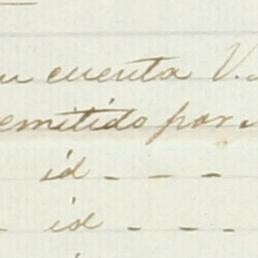 su cuenta V.
remitido por
id - - -
id - - -